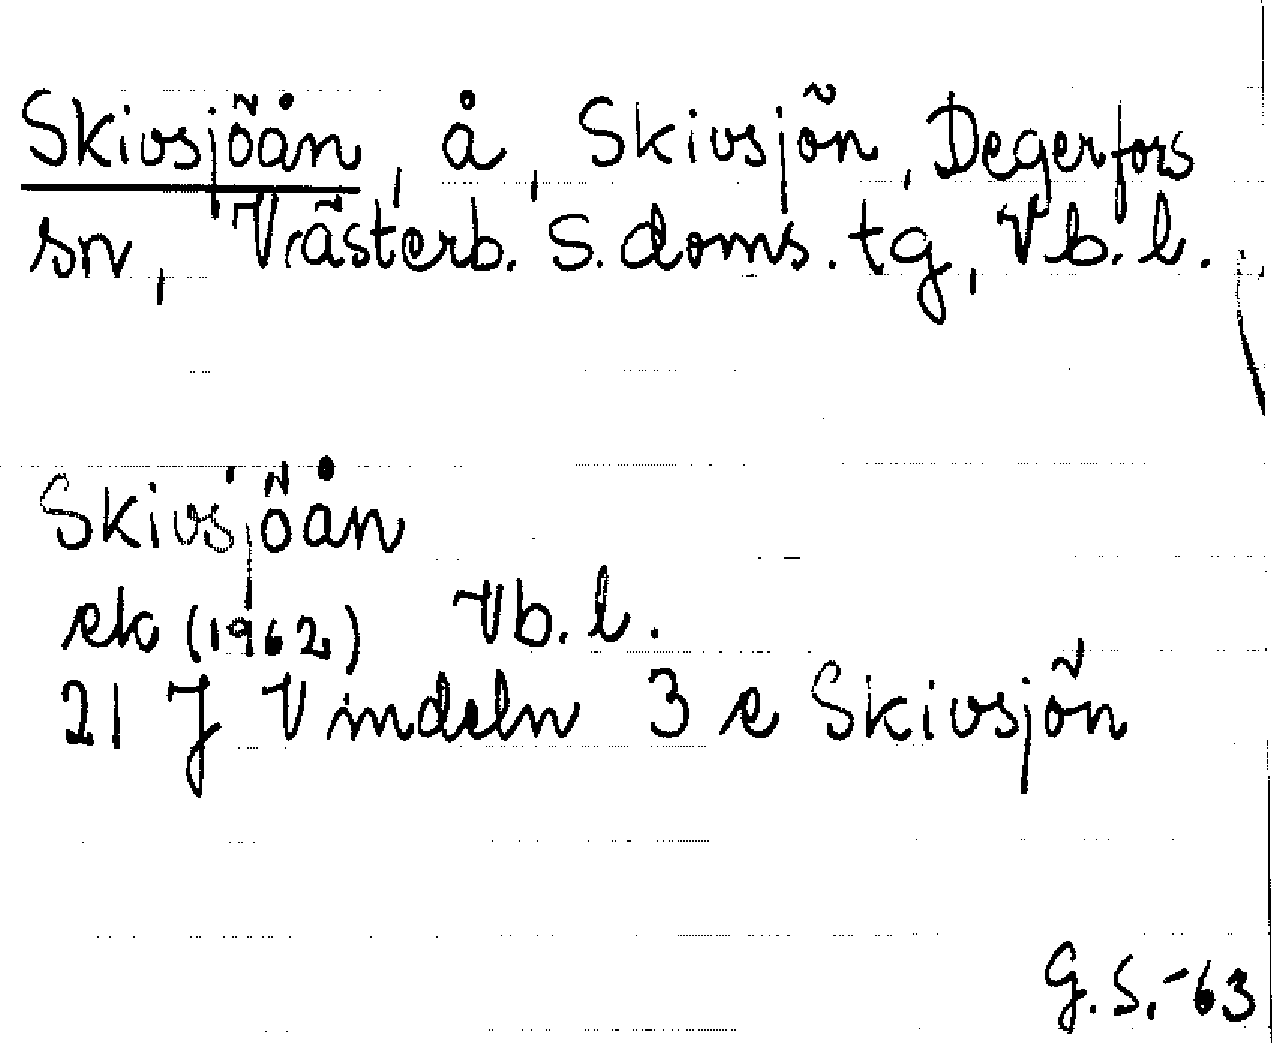 Skivsjöån, å, Skivsjön, Degerfors
sn, Västerb. s. doms. tg, Vb. l.
Skivsjöån
ek (1962) Vb. l.
21 J Vindeln 3 e Skivsjön
G.S. -63